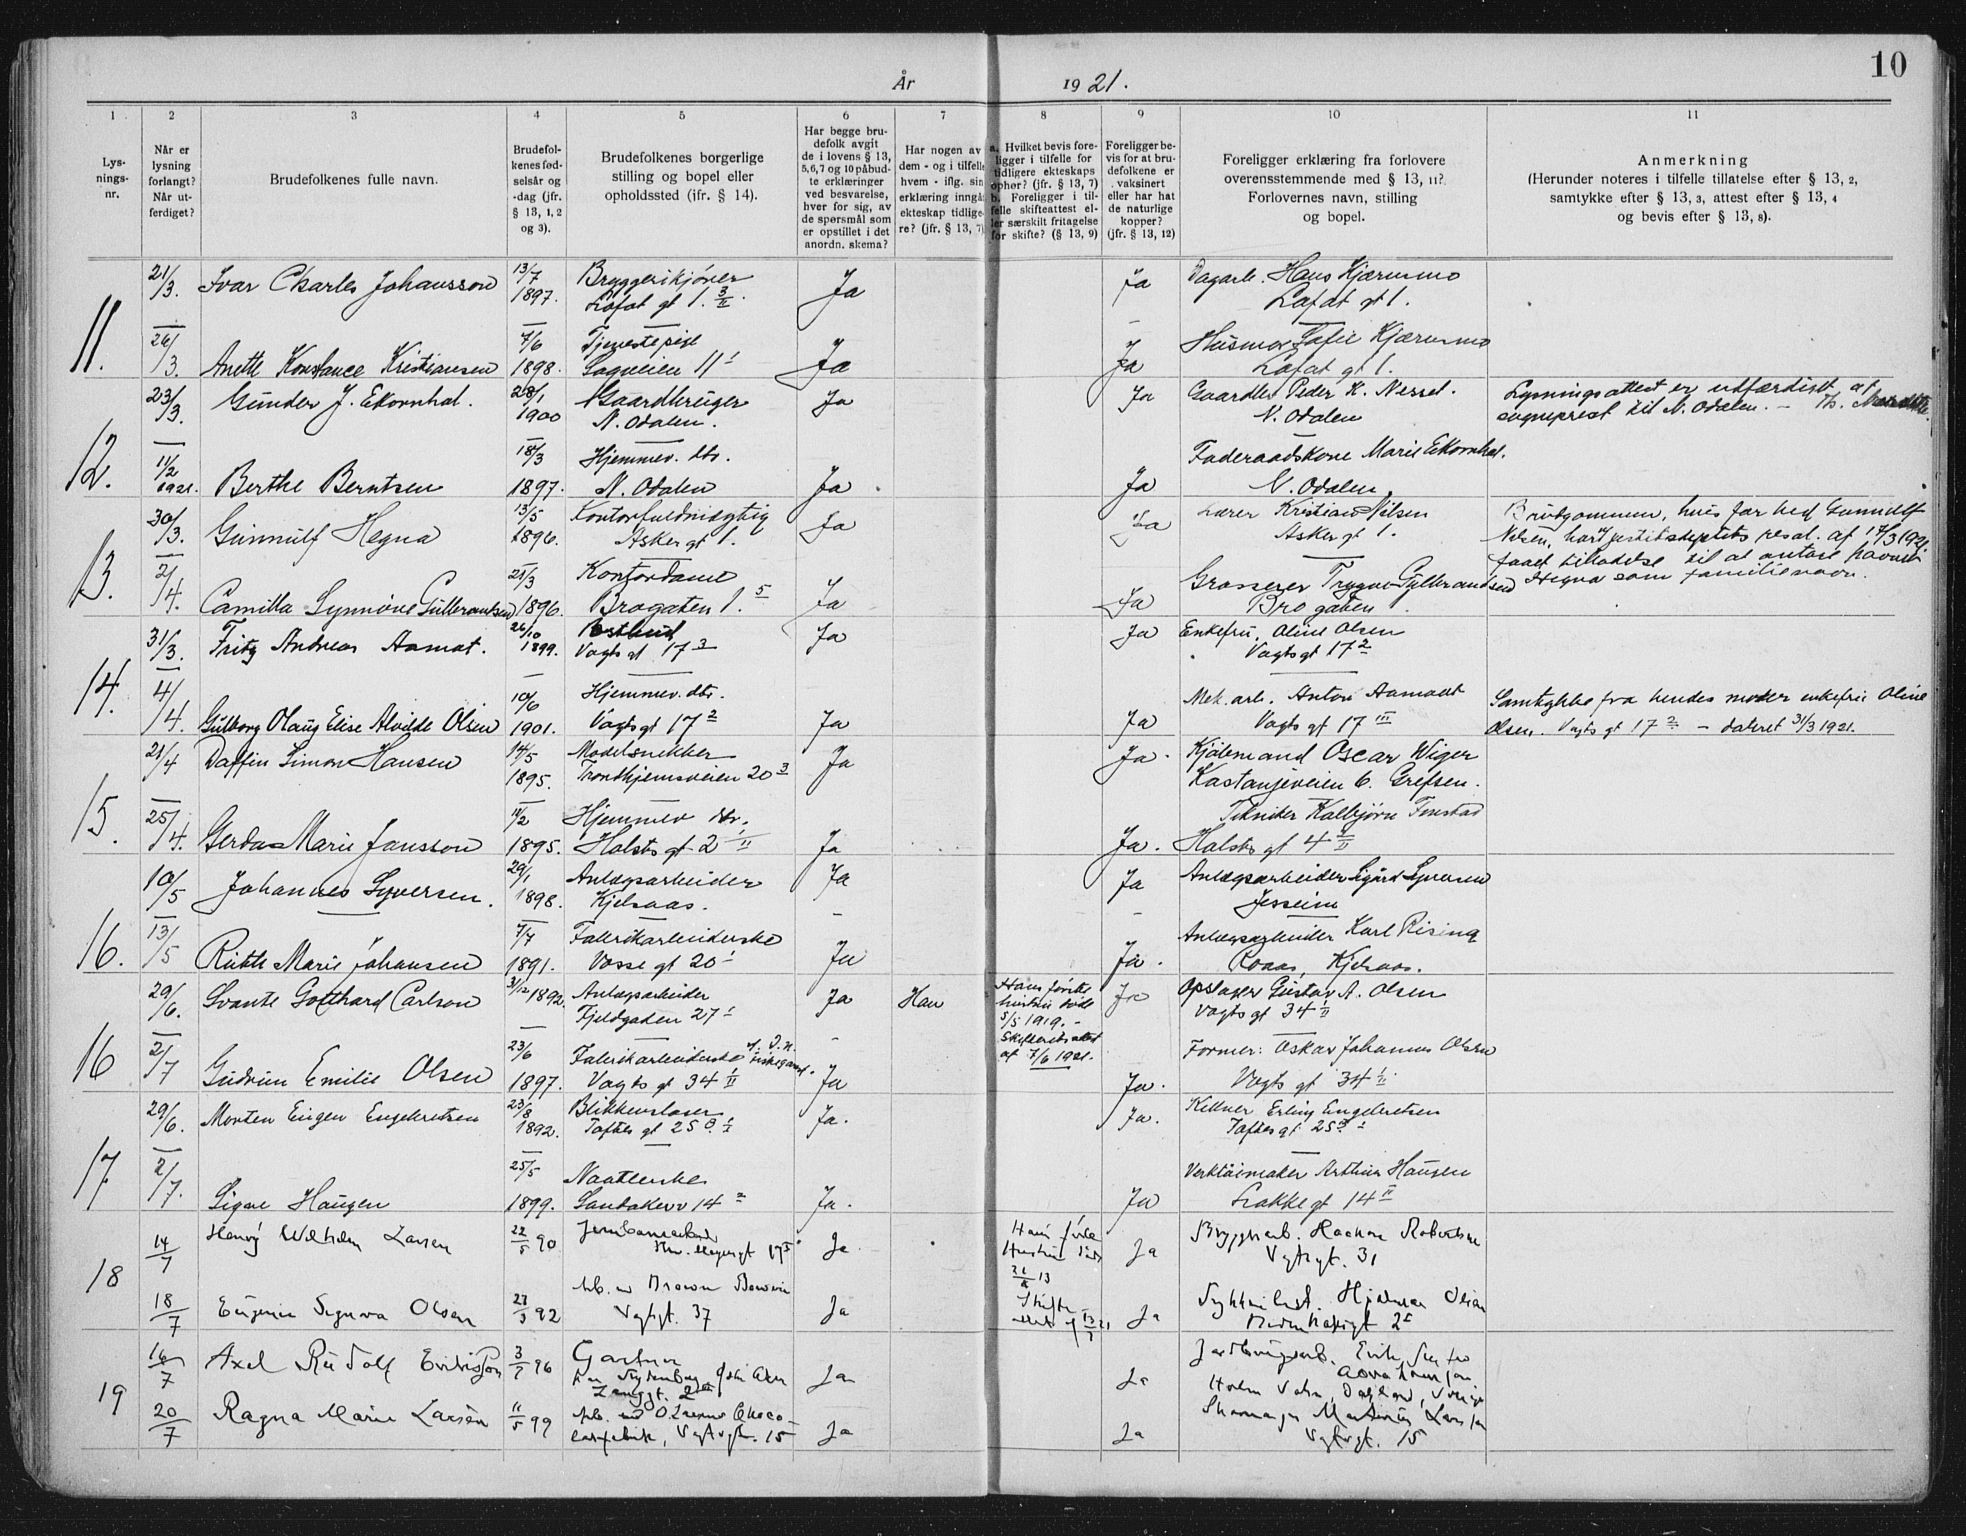 10
År 1921.
1 2 3 4 5 6 7 8 9 10 11
Lys-
nings-
nr.
Når er
lysning
forlangt?
Når ut-
ferdiget?
Brudefolkenes fulle navn.
Brudefol-
kenes fød-
selsår og
-dag (jfr.
§ 13, 1, 2
og 3).
Brudefolkenes borgerlige
stilling og bopel eller
opholdssted (jfr. § 14).
Har begge bru-
defolk avgit
de i lovens § 13,
5, 6, 7 og 10 påbud-
te erklæringer
ved besvarelse,
hver for sig, av
de spørsmål som
er opstillet i det
anordn. skema?
Har nogen av
dem - og i tilfelle
hvem - iflg. sin
erklæring inngåt
ekteskap tidlige-
re? (jfr. § 13, 7)
a. Hvilket bevis fore-
ligger i tilfelle for
tidligere ekteskaps
ophør? (jfr. § 13, 7)
b. Foreligger i til-
felle skifteattest el-
ler særskilt fritagelse
for skifte? (§ 13, 9)
Foreligger be-
vis for at bru-
defolkene er
vaksinert
eller har hat
de naturlige
kopper?
(jfr. § 13, 12)
Foreligger erklæring fra forlovere
overensstemmende med § 13, 11?
Forlovernes navn, stilling
og bopel.
Anmerkning
(Herunder noteres i tilfelle tillatelse efter § 13, 2,
samtykke efter § 13, 3, attest efter § 13, 4
og bevis efter § 13, 8).
11.
21/3. Ivar Charles Johansson 13/7 1897. Bryggerikjører Ja Ja Dagarb. Hans Kjærnsmo
Lofot gt 1. 3/II. Lofot gt 1.
26/3. Anette Konstance Kristiansen 7/6 1898. Tjenestepige Ja Ja Husmor Kjærnsmo
Sagveien 11 Lofot gt 1.
12.
23/3. Gunder J. Ekornhol. 28/1 1900 Gaardbruger Ja Ja Gaardbr. Peder K. Nessel. Lysningsattest er utfærdiget af
N. Odalen. N. Odalen sogneprest til N. Odalen. –
11/2 1921. Berthe Berntsen 18/3 1897. Hjemmev. dtr. Ja Ja Føderaadskone Marie Ekornhol.
N. Odalen N. Odalen.
13.
30/3. Gunnulf Hegna 13/5 1896. Kontorfuldmægtig Ja Ja Lærer Kristian Nilsen Brudgommen, hvis far hed Gunnulf
Asker gt 1. Asker gt 1. Nilsen, har ved justitsdeptets resol. af 17/3 1921
faaet tilladelse til at antage navnet
Hegna som familienavn.
2/4. Camilla Synnøve Gulbrandsen 21/3 1896. Kontordame Ja Ja Grosserer Trygve Gulbrandsen
Brogaten 1. 5 Brogaten
14.
31/3. Fritz Andreas Aamot. 26/10 1899. Ja Ja Enkefru Oline Olsen
Vogts gt 17 3 Vogts gt 17 2
4/4. Gulborg Olaug Elise Alvilde Olsen 10/6 1901. Hjemmev. dtr. Ja Ja Mek. arb. Anton Aamodt Samtykke fra hendes moder enkefru Oline
Vogts gt 17 2 Vogts gt 17 III Olsen. Vogts gt 17 2 – dateret 31/3 1921.
15.
21/4 Daffin Simon Hansen 14/5 1895. Modelsnekker Ja Ja. Kjølemand Oscar Wiger
Trondhjemsveien 20 3 Kastanjeveien 6. Grefsen.
25/4. Gerda Marie Jansson 11/2 1895. Hjemmev. dtr. Ja Ja. Tekniker Kolbjørn Finstad
Holsts gt 2 II Holsts gt 4 II
16.
10/5 Johannes Syversen. 29/1 1898. Anlægsarbeider Ja Ja Anlægsarbeider Sigurd Syversen
Kjelsaas. Jesseim
13/5 Ruth Marie Johansen 7/7 1891. Fabrikarbeiderske Ja Ja. Anlægsarbeider Karl Rising
Vosse gt 20 Roaas, Kjelsaas.
16
29/6. Svante Gotthard Carlson 31/12 1892. Anlægsarbeider Ja Han Hans første Ja Opslager Gustav A. Olsen
Fjeldgaden 27 hustru døde Vogts gt 34 II
5/5 1919. –
Skifteretsattest
af 7/6 1921.
2/7 Gudrun Emilie Olsen 23/6 1897. Fabrikarbeiderske Ja Ja. Former: Oskar Johannes Olsen
Vogts gt 34 II Vogts gt 34 II
17
29/6. Morten Eugen Engebretsen 23/8 1892. Blikkenslager Ja. Ja. Kellner Erling Engebretsen
Toftes gt 25 Toftes gt 25
2/7. Signe Haugen 25/5 1899. Naatlerske Ja. Ja Verktøimaker Arthur Haugen
Sandakerv 14 2 Frakke gt 14 II
18
14/7 Henry Wilhelm Larsen 22/5 90 Jernbanearbeider Ja Hans første Ja Bryggearb. Haakon Robertsen
Hustru døde Vogtsgt. 31
21/8 13
18/7 Eugenie Signora Olsen 27/3 92 Arb. Ja Skifte- Ja Hjalmar Olsen
Vogtsgt. 37 attest af 13/7 21
19
16/7 Axel Rudolf Eriksson 3/7 96 Gartner Ja Ja
20/7 Ragna Marie Larsen 11/5 99 Arb. ved Choco- Ja Ja Martinius Larsen
ladefabrik, Vogtsgt. 15 Vogtsgt. 15